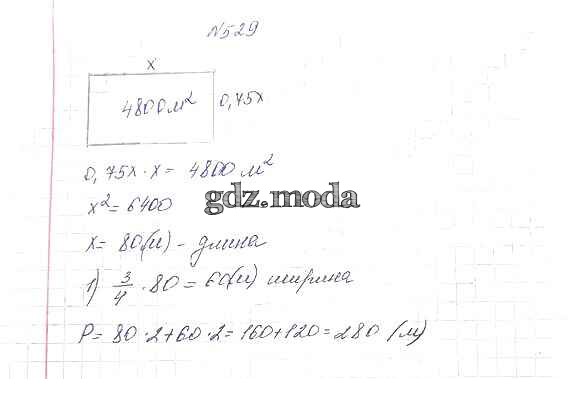 №529
x
4800 м² 0,75x
0,75x · x = 4800 м²
x² = 6400
gdz.moda
x = 80(м) - длина
1) 3/4 · 80 = 60(м) ширина
P = 80 · 2 + 60 · 2 = 160 + 120 = 280 (м)